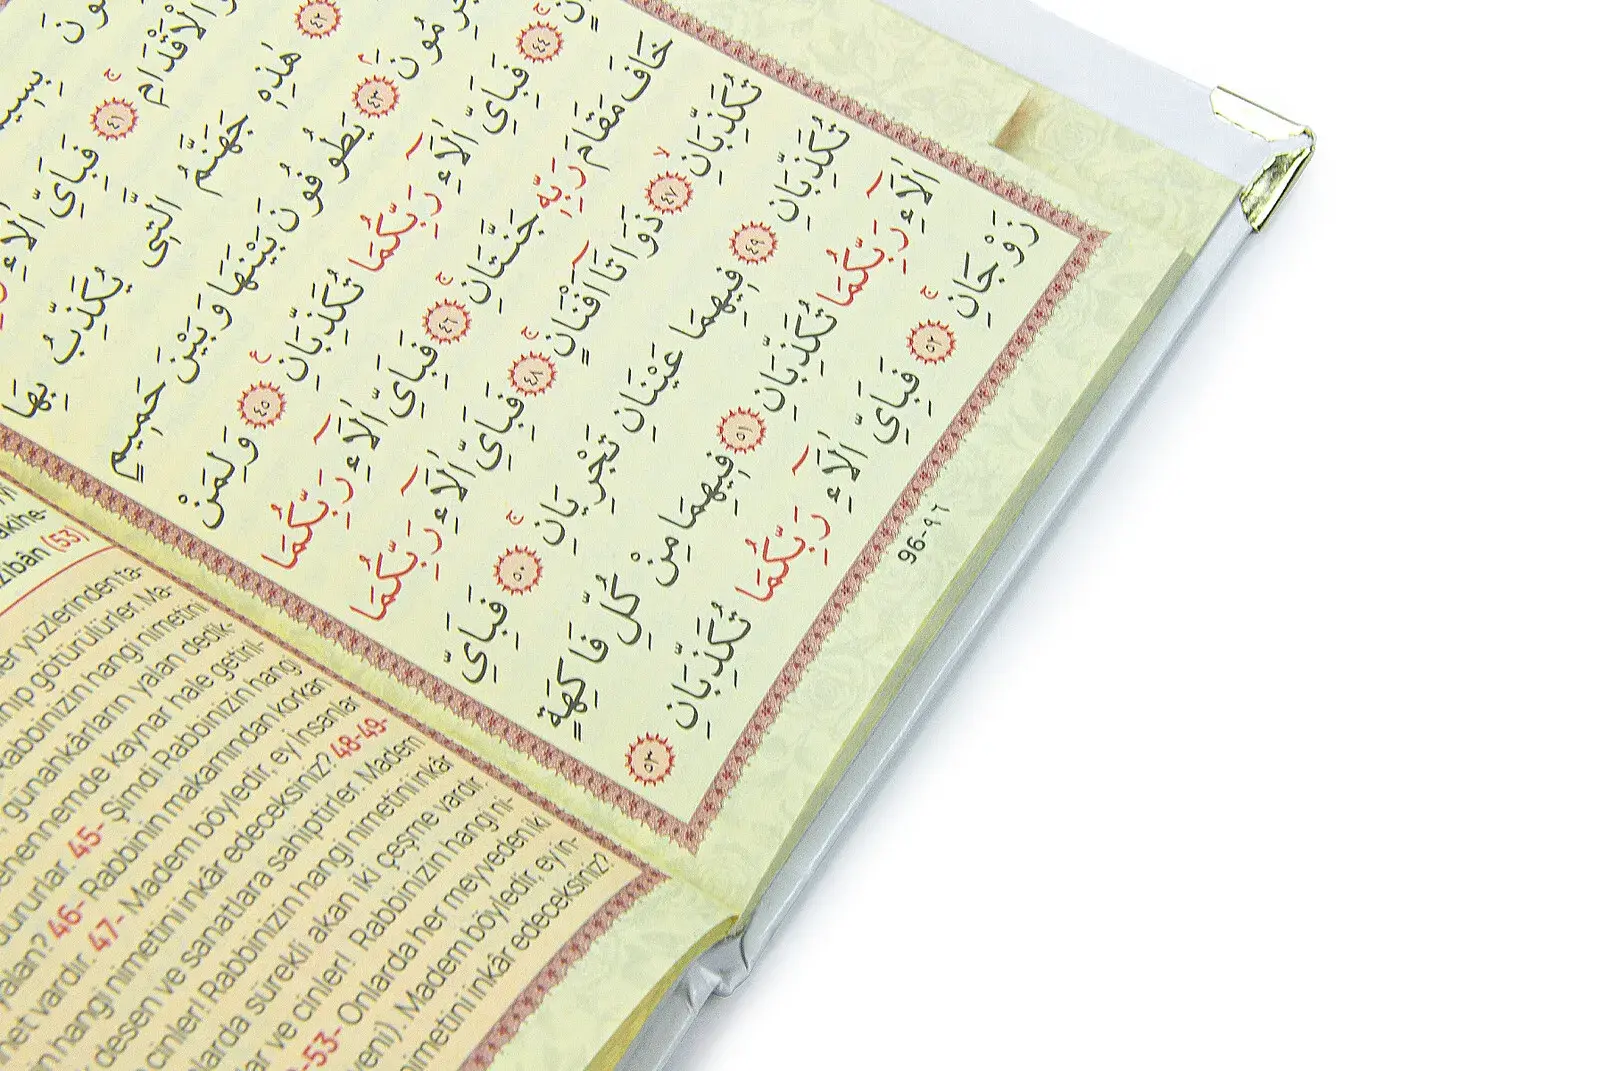 وَالْاَقْدَامِۚ ﴿٤١﴾ فَبِاَىِّ اٰلَٓاءِ
﴿٤٢﴾ هٰذِهٖ جَهَنَّمُ الَّتٖى يُكَذِّبُ بِهَا
﴿٤٣﴾ يَطُوفُونَ بَيْنَهَا وَبَيْنَ حَمٖيمٍ
﴿٤٤﴾ فَبِاَىِّ اٰلَٓاءِ رَبِّكُمَا تُكَذِّبَانِۚ ﴿٤٥﴾ وَلِمَنْ
خَافَ مَقَامَ رَبِّهٖ جَنَّتَانِۚ ﴿٤٦﴾ فَبِاَىِّ اٰلَٓاءِ رَبِّكُمَا
تُكَذِّبَانِۙ ﴿٤٧﴾ ذَوَاتَٓا اَفْنَانٍۚ ﴿٤٨﴾ فَبِاَىِّ اٰلَٓاءِ رَبِّكُمَا
تُكَذِّبَانِ ﴿٤٩﴾ فٖيهِمَا عَيْنَانِ تَجْرِيَانِۚ ﴿٥٠﴾ فَبِاَىِّ
اٰلَٓاءِ رَبِّكُمَا تُكَذِّبَانِ ﴿٥١﴾ فٖيهِمَا مِنْ كُلِّ فَاكِهَةٍ
زَوْجَانِۚ ﴿٥٢﴾ فَبِاَىِّ اٰلَٓاءِ رَبِّكُمَا تُكَذِّبَانِ ﴿٥٣﴾
96-٩٦
(53)
yüzlerinden ta-
götürülürler. Ma-
Rabbinizin hangi nimetini
günahkârların yalan dedik-
cehennemde kaynar hale getiril-
dururlar. 45- Şimdi Rabbinizin hangi
yalan? 46- Rabbinin makamından korkan
vardır. 47- Madem böyledir, ey insanlar
hangi nimetini inkâr edeceksiniz? 48-49-
desen ve sanatlara sahiptirler. Madem
cinler! Rabbinizin hangi nimetini inkâr
sürekli akan iki çeşme vardır.
ve cinler! Rabbinizin hangi ni-
-53- Onlarda her meyveden iki
Madem böyledir, ey in-
nimetini inkâr edeceksiniz?